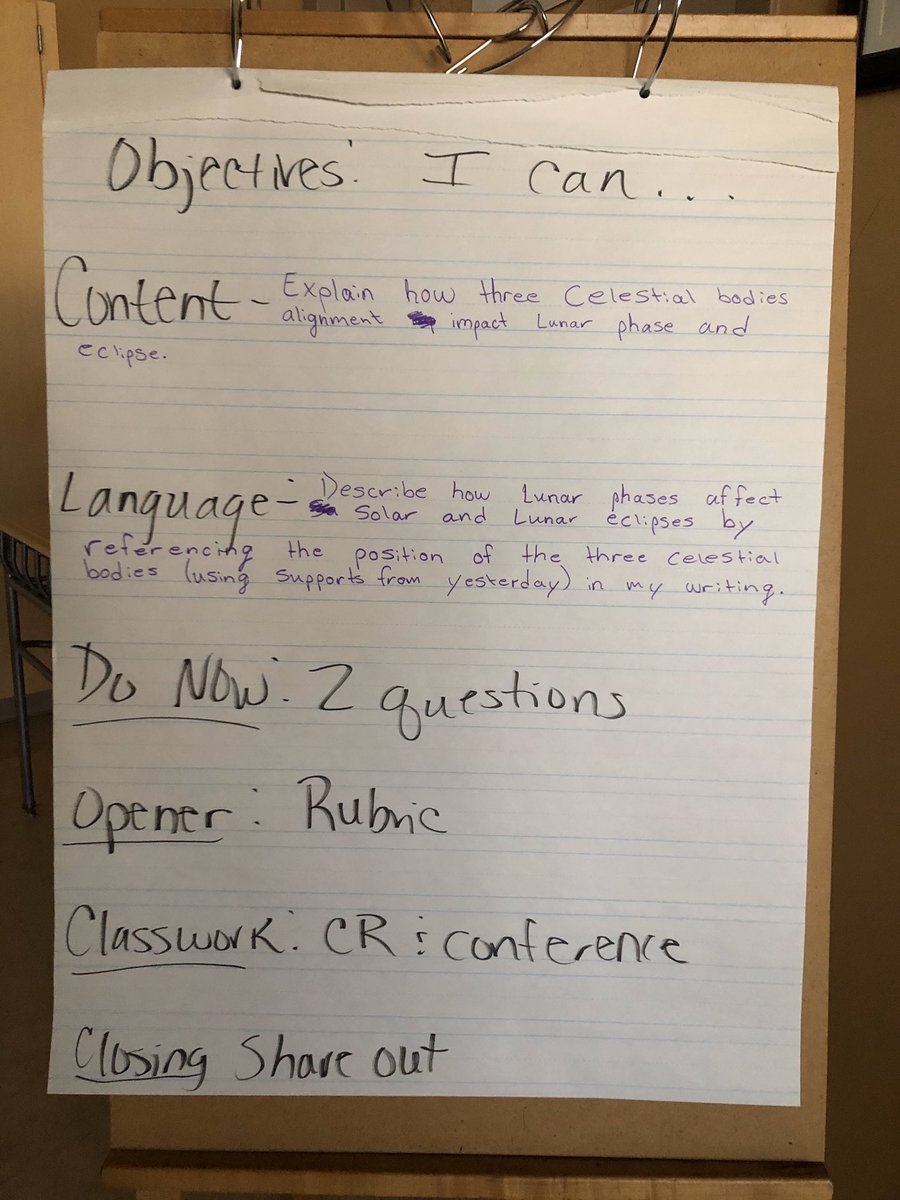 Objectives: I can...
Content - Explain how three celestial bodies
alignment impact Lunar phase and
eclipse.
Language - Describe how Lunar phases affect
Solar and Lunar eclipses by
referencing the position of the three celestial
bodies (using supports from yesterday) in my writing.
Do Now: 2 questions
Opener: Rubric
Classwork: CR & conference
Closing Share out